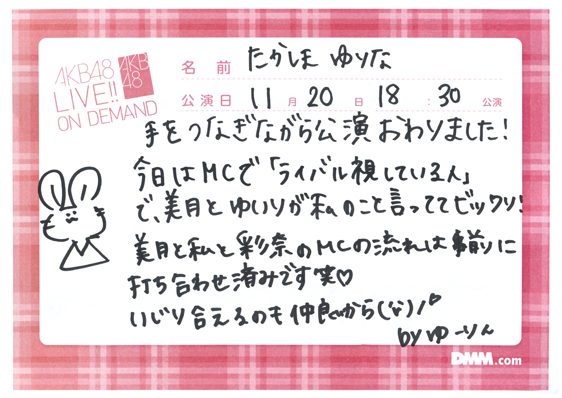 AKB48
LIVE!!
ON DEMAND
AKB
48
名前 たかしま ゆりな
公演日 11月20日 18:30公演
手をつなぎながら公演おわりました!
今日はMCで「ライバル視している人」
で、美月とゆいりが私のこと言っててビックリ!
美月と私と彩奈のMCの流れは事前に
打ち合わせ済みです笑♡
いじり合えるのも仲良しだから(な)!♡
by ゆーりん
DMM.com